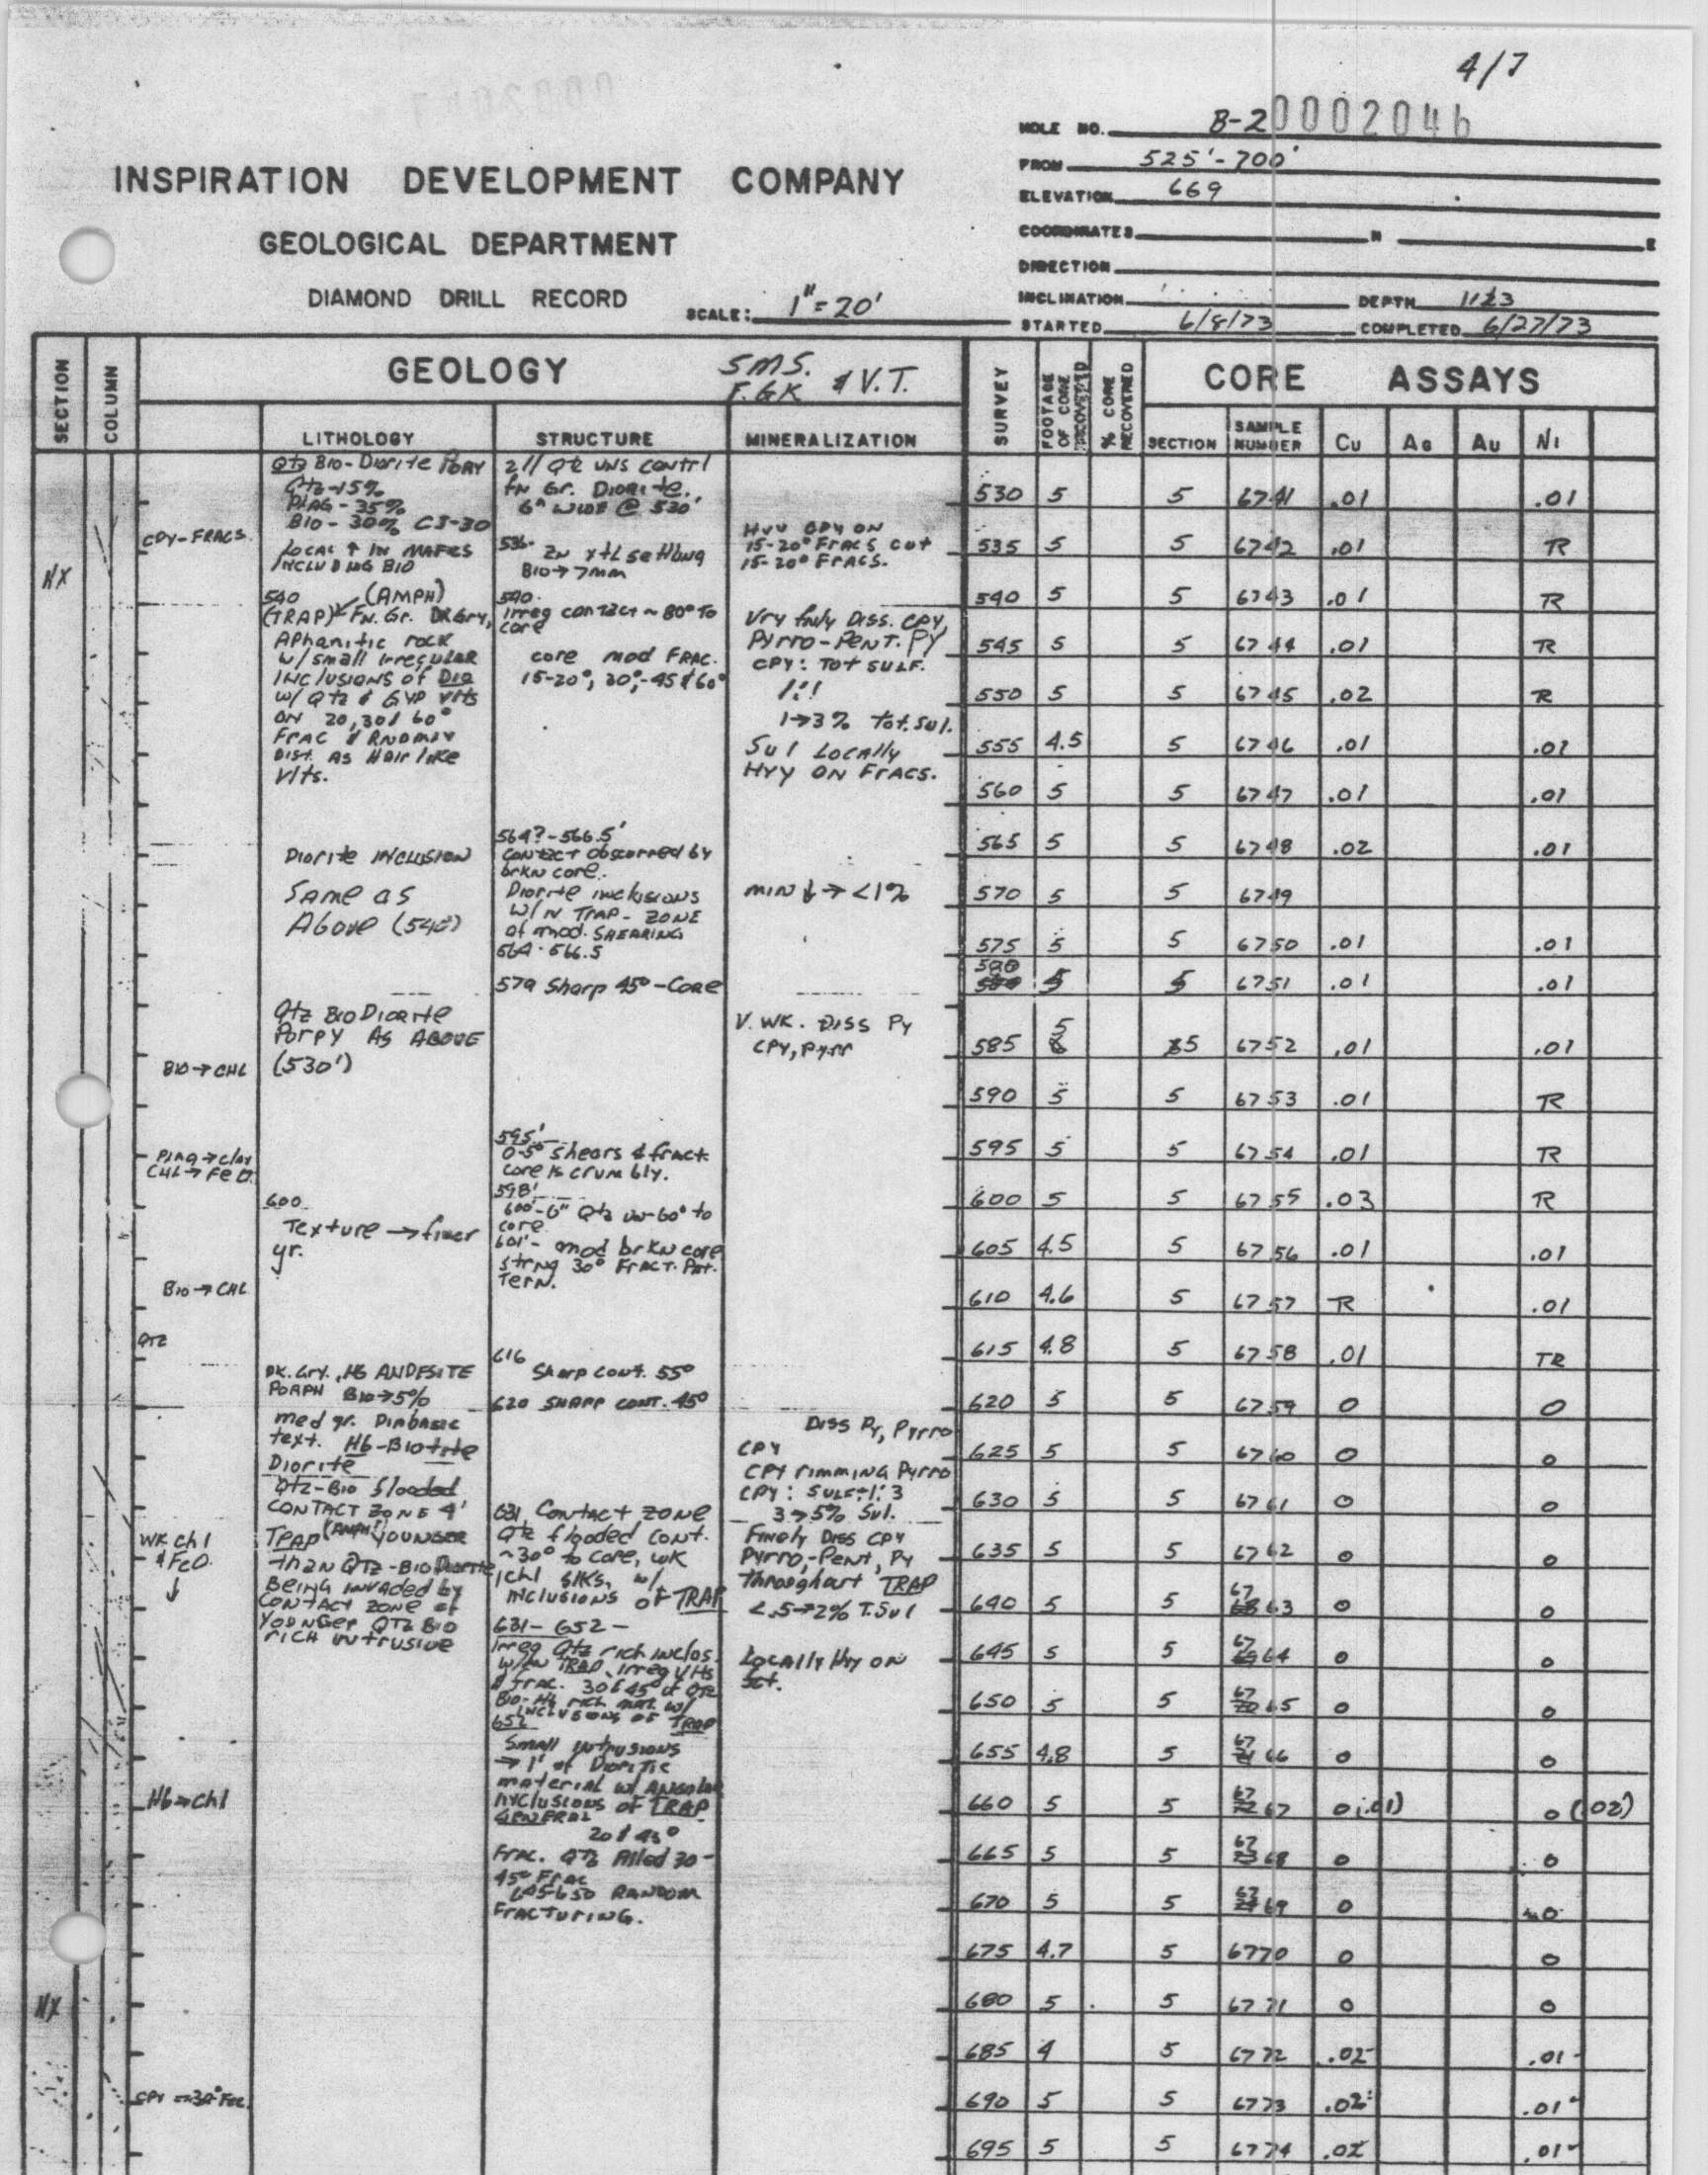 4/7
HOLE NO. B-2 0002046
FROM 525'-700'
INSPIRATION DEVELOPMENT COMPANY
ELEVATION 669
COORDINATES N E
GEOLOGICAL DEPARTMENT
DIRECTION
DIAMOND DRILL RECORD
SCALE: 1"=20'
INCLINATION DEPTH 1123
STARTED 6/8/73 COMPLETED 6/27/73
SECTION
COLUMN
GEOLOGY
SMS.
F.GK & V.T.
SURVEY
FOOTAGE OF CORE RECOVERED
% CORE RECOVERED
CORE ASSAYS
LITHOLOGY STRUCTURE MINERALIZATION
SECTION SAMPLE NUMBER Cu AG AU Ni
NX
CPY-FRACS.
BIO→CHL
PLAG→Clay
CHL→FeO
BIO→CHL
QTZ
WK chl
& FeO
↓
Hb→Chl
NX
Qtz Bio-Diorite PORY
Qtz-15%
PLAG-35%
BIO-30% CI-30
LOCAL ↑ IN MAFICS
INCLUDING BIO
540 (AMPH)
(TRAP) FN. Gr. DK Gry,
APhanitic rock
w/small irregular
INClusions of DIO
w/ Qtz & GYP Vlts
ON 20, 30 & 60°
Frac &
Dist. AS Hair like
Vlts.
Diorite INCLUSION
Same as
Above (540)
Qtz BIO Diorite
PorPY AS ABOVE
(530')
600
Texture → finer
gr.
DK. Gry., Hb ANDESITE
PORPH BIO→5%
med gr. Diabasic
text. Hb-Biotite
Diorite
Qtz-Bio flooded
CONTACT ZONE 4'
TRAP (AMPH) YOUNGER
than QTZ-BIO Diorite
Being invaded by
CONTACT ZONE of
YOUNGER QTZ BIO
rich intrusive
2 // Qtz VNS contrl
fn Gr. Diorite.
6" WIDE @ 530'
536-
xtl setting
BIO→7mm
540-
Irreg contact ~ 80° To
core
core mod FRAC.
15-20°, 30°,-45 & 60°
564?-566.5'
contact obscurred by
brkn core.
Diorite inclusions
W/N TRAP- ZONE
of mod. SHEARING
564-566.5
579 Sharp 45°-Core
595'
0-5° Shears & fract
core is crumbly.
598'
600'-6" Qtz vn-60° to
core
601'- mod brkn core
strng 30° FRACT. Pat-
Tern.
616
Sharp cont. 55°
620 SHARP CONT. 45°
631, Contact ZONE
Qtz flooded Cont.
~30° to core, wk
chl slks, w/
inclusions of TRAP
631-652-
Irreg Qtz rich inclus.
w/in TRAP, irreg Vlts
& frac. 30 & 45° of Qtz
Bio-Hb rich mat. w/
INCLUSIONS OF TRAP
652
Small intrusions
→1' of Dioritic
material w/ ANGular
inclusions of TRAP.
GENERAL
20 & 45°
Frac. Qtz filled 30-
45° Frac
645-650 RANDOM
FracTuring.
Hvy CPY ON
15-20° Fracs cut
15-20° Fracs.
Vry fnly Diss. CPY,
Pyrro-PenT. PY
CPY: Tot SULF.
1:1
1→3% Tot. Sul.
Sul Locally
HVY ON Fracs.
MIN ↓→<1%
V. WK. DISS PY
CPY, Pyrr
Diss Py, Pyrro
CPY
CPY rimming Pyrro
CPY: SULF=1:3
3→5% Sul.
Finely Diss CPY
Pyrro,-Pent, Py
throughout TRAP
<.5→2% T. Sul
Locally Hvy ON
530 5 5 6741 .01 .01
535 5 5 6742 .01 TR
540 5 5 6743 .01 TR
545 5 5 6744 .01 TR
550 5 5 6745 .02 TR
555 4.5 5 6746 .01 .01
560 5 5 6747 .01 .01
565 5 5 6748 .02 .01
570 5 5 6749
575 5 5 6750 .01 .01
580 5 5 6751 .01 .01
585 5 5 6752 .01 .01
590 5 5 6753 .01 TR
595 5 5 6754 .01 TR
600 5 5 6755 .03 TR
605 4.5 5 6756 .01 .01
610 4.6 5 6757 TR .01
615 4.8 5 6758 .01 TR
620 5 5 6759 0 0
625 5 5 6760 0 0
630 5 5 6761 0 0
635 5 5 6762 0 0
640 5 5 6763 0 0
645 5 5 6764 0 0
650 5 5 6765 0 0
655 4.8 5 6766 0 0
660 5 5 6767 0 (.01) 0 (.02)
665 5 5 6768 0 0
670 5 5 6769 0 0
675 4.7 5 6770 0 0
680 5 5 6771 0 0
685 4 5 6772 .02 .01
690 5 5 6773 .02 .01
695 5 5 6774 .02 .01